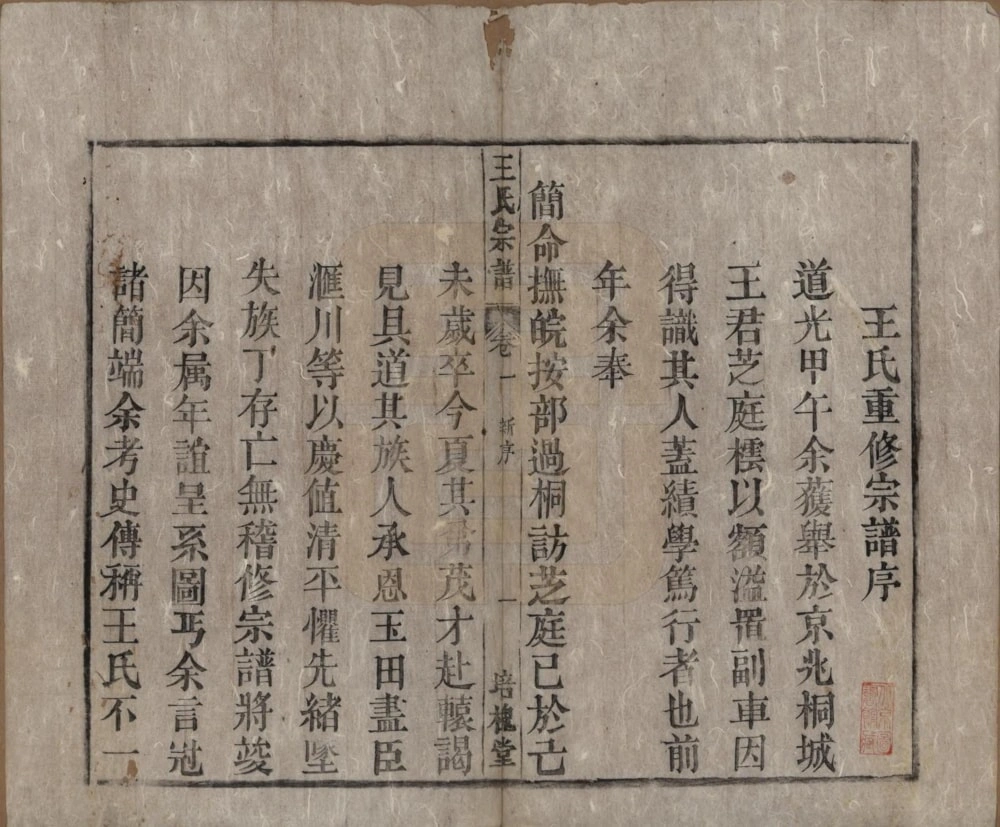 王氏重修宗譜序
道光甲午余獲舉於京兆桐城
王君芝庭櫺以額溢置副車因
得識其人蓋績學篤行者也前
年余奉
簡命撫皖按部過桐訪芝庭已於己
王氏宗譜
卷一
新序
一
培槐堂
未歲卒今夏其 茂才赴轅謁
見具道其族人承恩玉田盡臣
滙川等以慶值清平懼先緒墜
失族丁存亡無稽修宗譜將竣
因余属年誼呈系圖丐余言冠
諸簡端余考史傳稱王氏不一